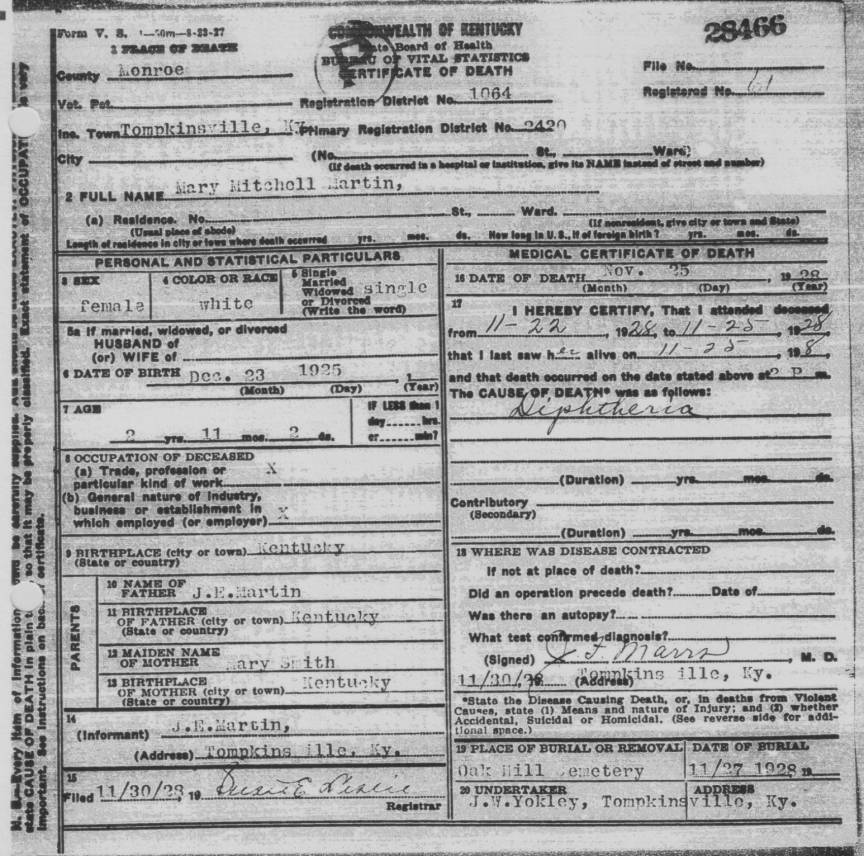 28466
Form V. S. 1-50m-8-23-27
COMMONWEALTH OF KENTUCKY
State Board of Health
BUREAU OF VITAL STATISTICS
CERTIFICATE OF DEATH
1 PLACE OF DEATH
County Monroe
File No.
Vot. Pct.
Registration District No. 1064
Registered No. 61
Inc. Town Tompkinsville, Ky.
Primary Registration District No. 2420
City
(No. St., Ward)
(If death occurred in a hospital or institution, give its NAME instead of street and number)
2 FULL NAME Mary Mitchell Martin,
(a) Residence. No. St., Ward.
(Usual place of abode) (If nonresident, give city or town and State)
Length of residence in city or town where death occurred yrs. mos. ds. How long in U. S., if of foreign birth? yrs. mos. ds.
PERSONAL AND STATISTICAL PARTICULARS
3 SEX female
4 COLOR OR RACE white
5 Single
Married
Widowed
or Divorced
(Write the word) single
5a If married, widowed, or divorced
HUSBAND of
(or) WIFE of
6 DATE OF BIRTH Dec. 23 1925, 1
(Month) (Day) (Year)
7 AGE
2 yrs. 11 mos. 2 ds.
IF LESS than 1
day hrs.
or min?
8 OCCUPATION OF DECEASED
(a) Trade, profession or
particular kind of work X
(b) General nature of industry,
business or establishment in
which employed (or employer) X
9 BIRTHPLACE (city or town) Kentucky
(State or country)
PARENTS
10 NAME OF
FATHER J.E.Martin
11 BIRTHPLACE
OF FATHER (city or town) Kentucky
(State or country)
12 MAIDEN NAME
OF MOTHER Mary Smith
13 BIRTHPLACE
OF MOTHER (city or town) Kentucky
(State or country)
14
(Informant) J.E.Martin,
(Address) Tompkins ille, Ky.
15
Filed 11/30/28, 19
Registrar
MEDICAL CERTIFICATE OF DEATH
16 DATE OF DEATH Nov. 25, 1928
(Month) (Day) (Year)
17
I HEREBY CERTIFY, That I attended deceased
from 11-22, 1928, to 11-25, 1928
that I last saw her alive on 11-25, 198,
and that death occurred on the date stated above at 2 P m.
The CAUSE OF DEATH* was as follows:
Diphtheria
(Duration) yrs. mos. ds.
Contributory
(Secondary)
(Duration) yrs. mos. ds.
18 WHERE WAS DISEASE CONTRACTED
If not at place of death?
Did an operation precede death? Date of
Was there an autopsy?
What test confirmed diagnosis?
(Signed) J F Marrs, M. D.
11/30/28 19 (Address) Tompkins ille, Ky.
*State the Disease Causing Death, or, in deaths from Violent
Causes, state (1) Means and nature of Injury; and (2) whether
Accidental, Suicidal or Homicidal. (See reverse side for addi-
tional space.)
19 PLACE OF BURIAL OR REMOVAL
Oak Hill Cemetery
DATE OF BURIAL
11/27 1928 19
20 UNDERTAKER ADDRESS
J.W.Yokley, Tompkinsville, Ky.
N. B.—Every item of information
state CAUSE OF DEATH in plain so that it may be properly classified. Exact statement of OCCUPATION is very
important. See instructions on back of certificate.